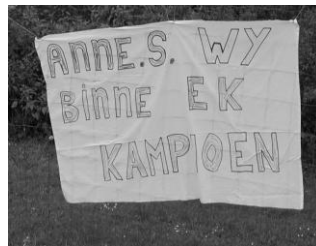 ANNE.S. WY
BINNE EK
KAMPIOEN